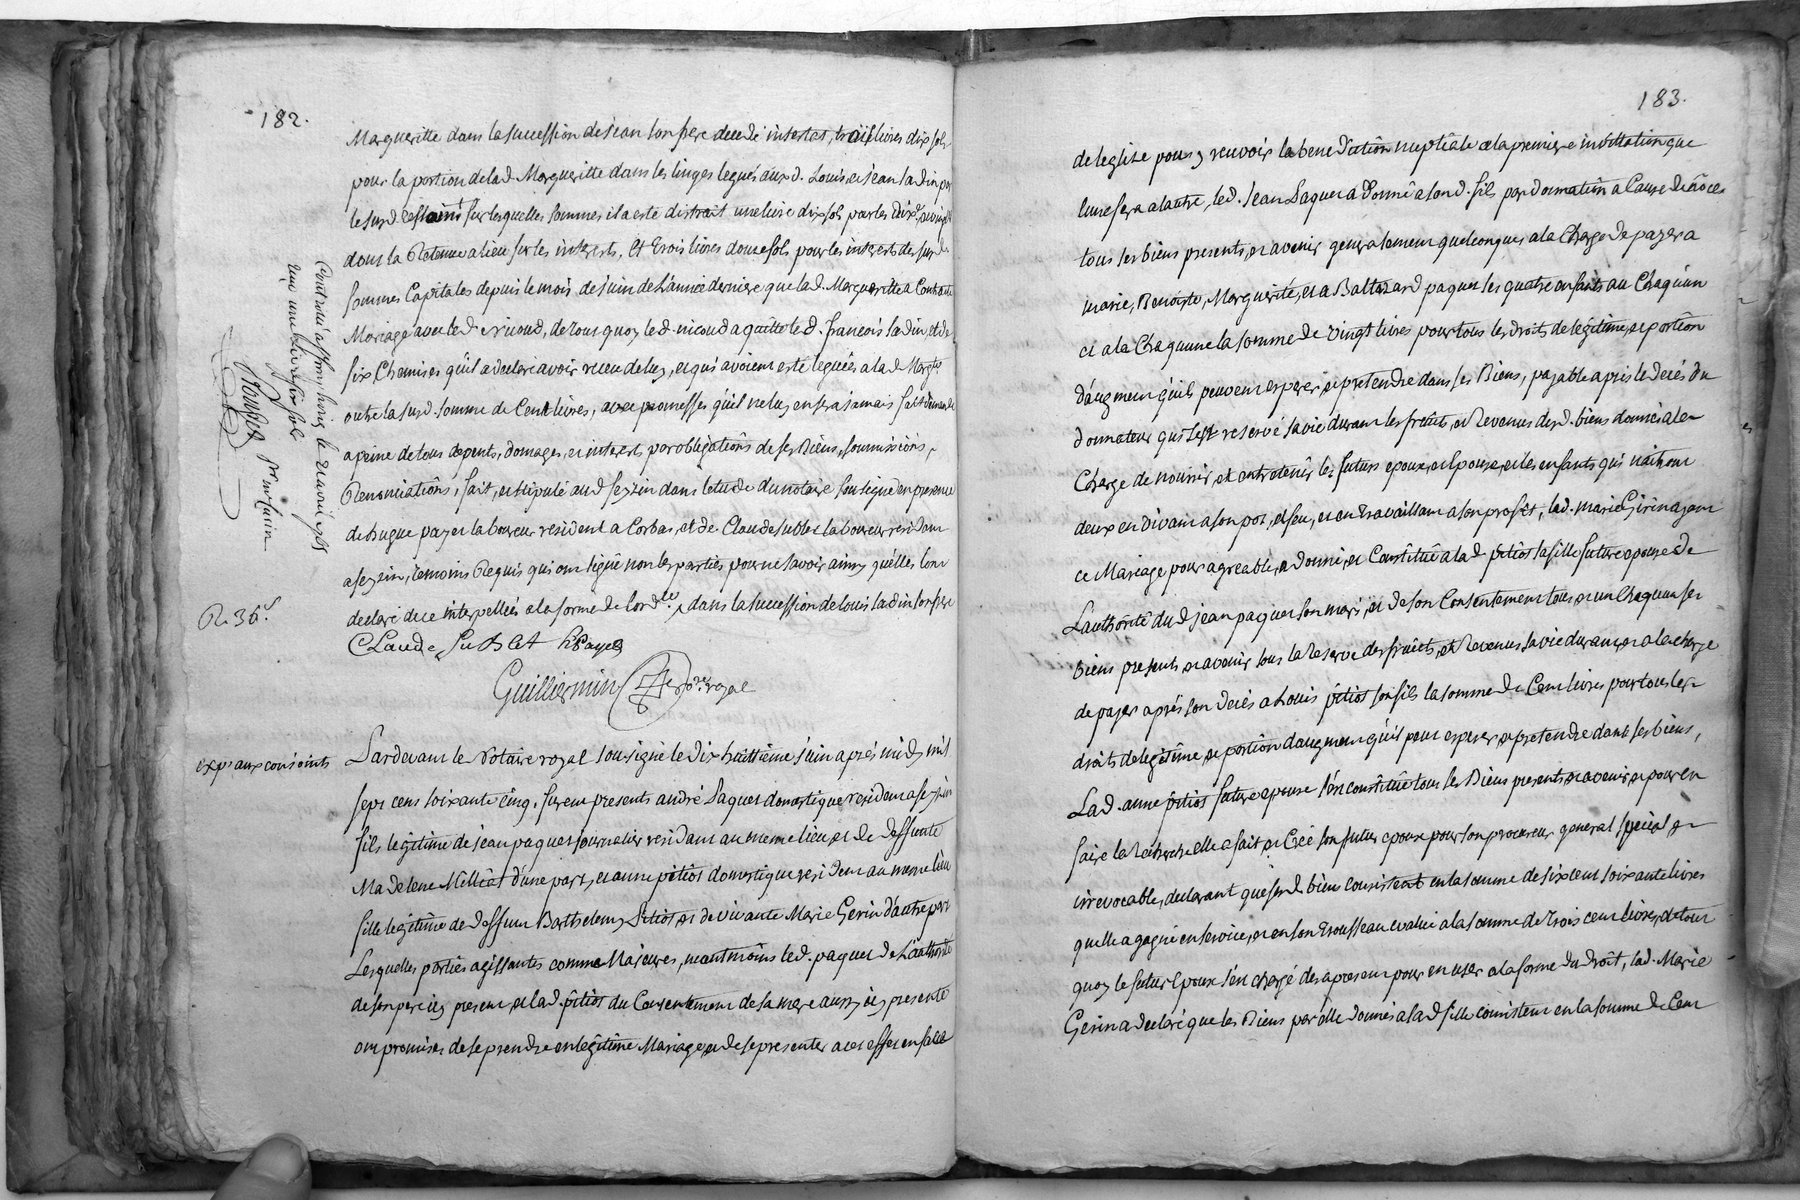 182.
Margueritte dans la succession de jean son frere decedé intestat, trois livres dix sols
pour la portion de lad. Margueritte dans les linges legués auxd. Louis, et jean ladin par
le surd. sur lesquelles sommes il a esté distrait une livre dix sols pour les dix.es
dont la Retenue a lieu sur les interests, Et trois livres douze sols pour les interests desurd.
sommes Capitales depuis le mois de juin de L'année derniere que lad. Margueritte a Contracté
Mariage avec led. nicoud, de tout quoy led. nicoud a quitté led. francois ladin, et de
six Chemises qu'il a declaré avoir receu de luy, et qui avoient esté leguées a lad. Margte
outre la surd. somme de Cent livres, avec promesses qu'il ne luy en sera jamais fait demande
a peine de tous depents, domages, et interests par obligations de ses Biens, soumissions,
Renonciations, fait, et stipulé aud. seyzin dans letude du notaire soussigné en presence
de hugue payet laboureur resident a Corbas, et de Claude sublet laboureur resident
a seyzin, temoins Requis qui ont signé non les parties pour ne savoir ainsy quelles l'ont
declaré de ce interpellées a la forme de lord.ce dans la succession de louis ladin son frere
CLaude SuBlet hPayes
Guilliermin no.re royal
Controlé a st simphorien le avril 1765
une livre six sols
R. 36s.
exp.é aux conjoints
Pardevant le Notaire royal soussigné le dix huittieme juin aprés midy mil
sept cens soixante cinq, furent presents andré Paquet domestique resident a seyzin
fils legitime de jean paquet journalier resident au meme lieu, et de deffunte
Madelene Milliat d'une part, et anne pitiot domestique resident au meme lieu
fille legitime de deffunt Barthelemy Pitiot et de vivante Marie Gerin d'autre part
Lesquelles parties agissantes comme Majeures, neantmoins led. paquet de L'authorité
de son pere icy present, et lad. pitiot du Consentement de sa mere aussy icy presente
ont promises de se prendre en legitime Mariage, et de se presenter a cet effet en face
183.
de leglise pour y recevoir la benediction nuptiale a la premiere invittation que
lune fera a lautre, led. Jean Paquet a Donné a sond. fils par donnation a Cause de nôces
tous ses biens presents, et avenir generalement quelconques a la Charge de payer a
marie, Benoiste, Marguerite, et a Baltazard paquet ses quatre enfants au Chaqu'un
et a la Chaqu'une la somme de vingt livres pour tous les droits de legitime, et portion
d'augment qu'ils peuvent esperer, et pretendre dans ses Biens, payable apris le decés du
donnateur qui s'est reservé sa vie durant les fruits, et Revenus desd. biens donnés a la
Charge de nourrir, et entretenir les futurs epoux, et epouse, et les enfants qui naitront
deux en vivant a son pot, et feu, et en travaillant a son profit, lad. marie Girin ayant
ce Mariage pour agreable, a donné, et Constitué a lad. pitiot sa fille future epouse de
L'authorité dud. jean paquet son mari, et de son Consentement tous, et un Chaqun ses
biens presents, et avenir sous la Reserve des fruits, et Revenus sa vie durant, et a la charge
de payer aprés son decés a Louis pitiot son fils la somme de Cent livres pour tous les
droits de legitime, et portion daugment qu'il peut esperer, et pretendre dans ses biens,
Lad. anne pitiot future epouse s'est constitué tous ses Biens presents, et avenir, et pour en
faire la recherche elle a fait, et Créé son futur epoux pour son procureur general special et
irrevocable, declarant que sesd. biens consistent en la somme de six cent soixante livres
quelle a gagné en service, et en son trousseau evalué a la somme de trois cent livres, de tout
quoy le futur epoux s'en chargé des apresent pour en user a la forme du Droit, lad. Marie
Gerin a declaré que les Biens par elle donnés a lad. fille consistent en la somme de Cent